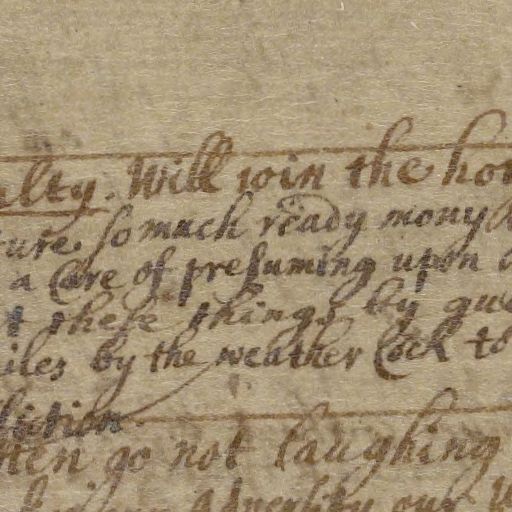 alty. Will win the hor
ture so much ready mony
a Care of presuming upon
t these things by gue
iles by the weather Cock to
diction
ten go not laughing
our